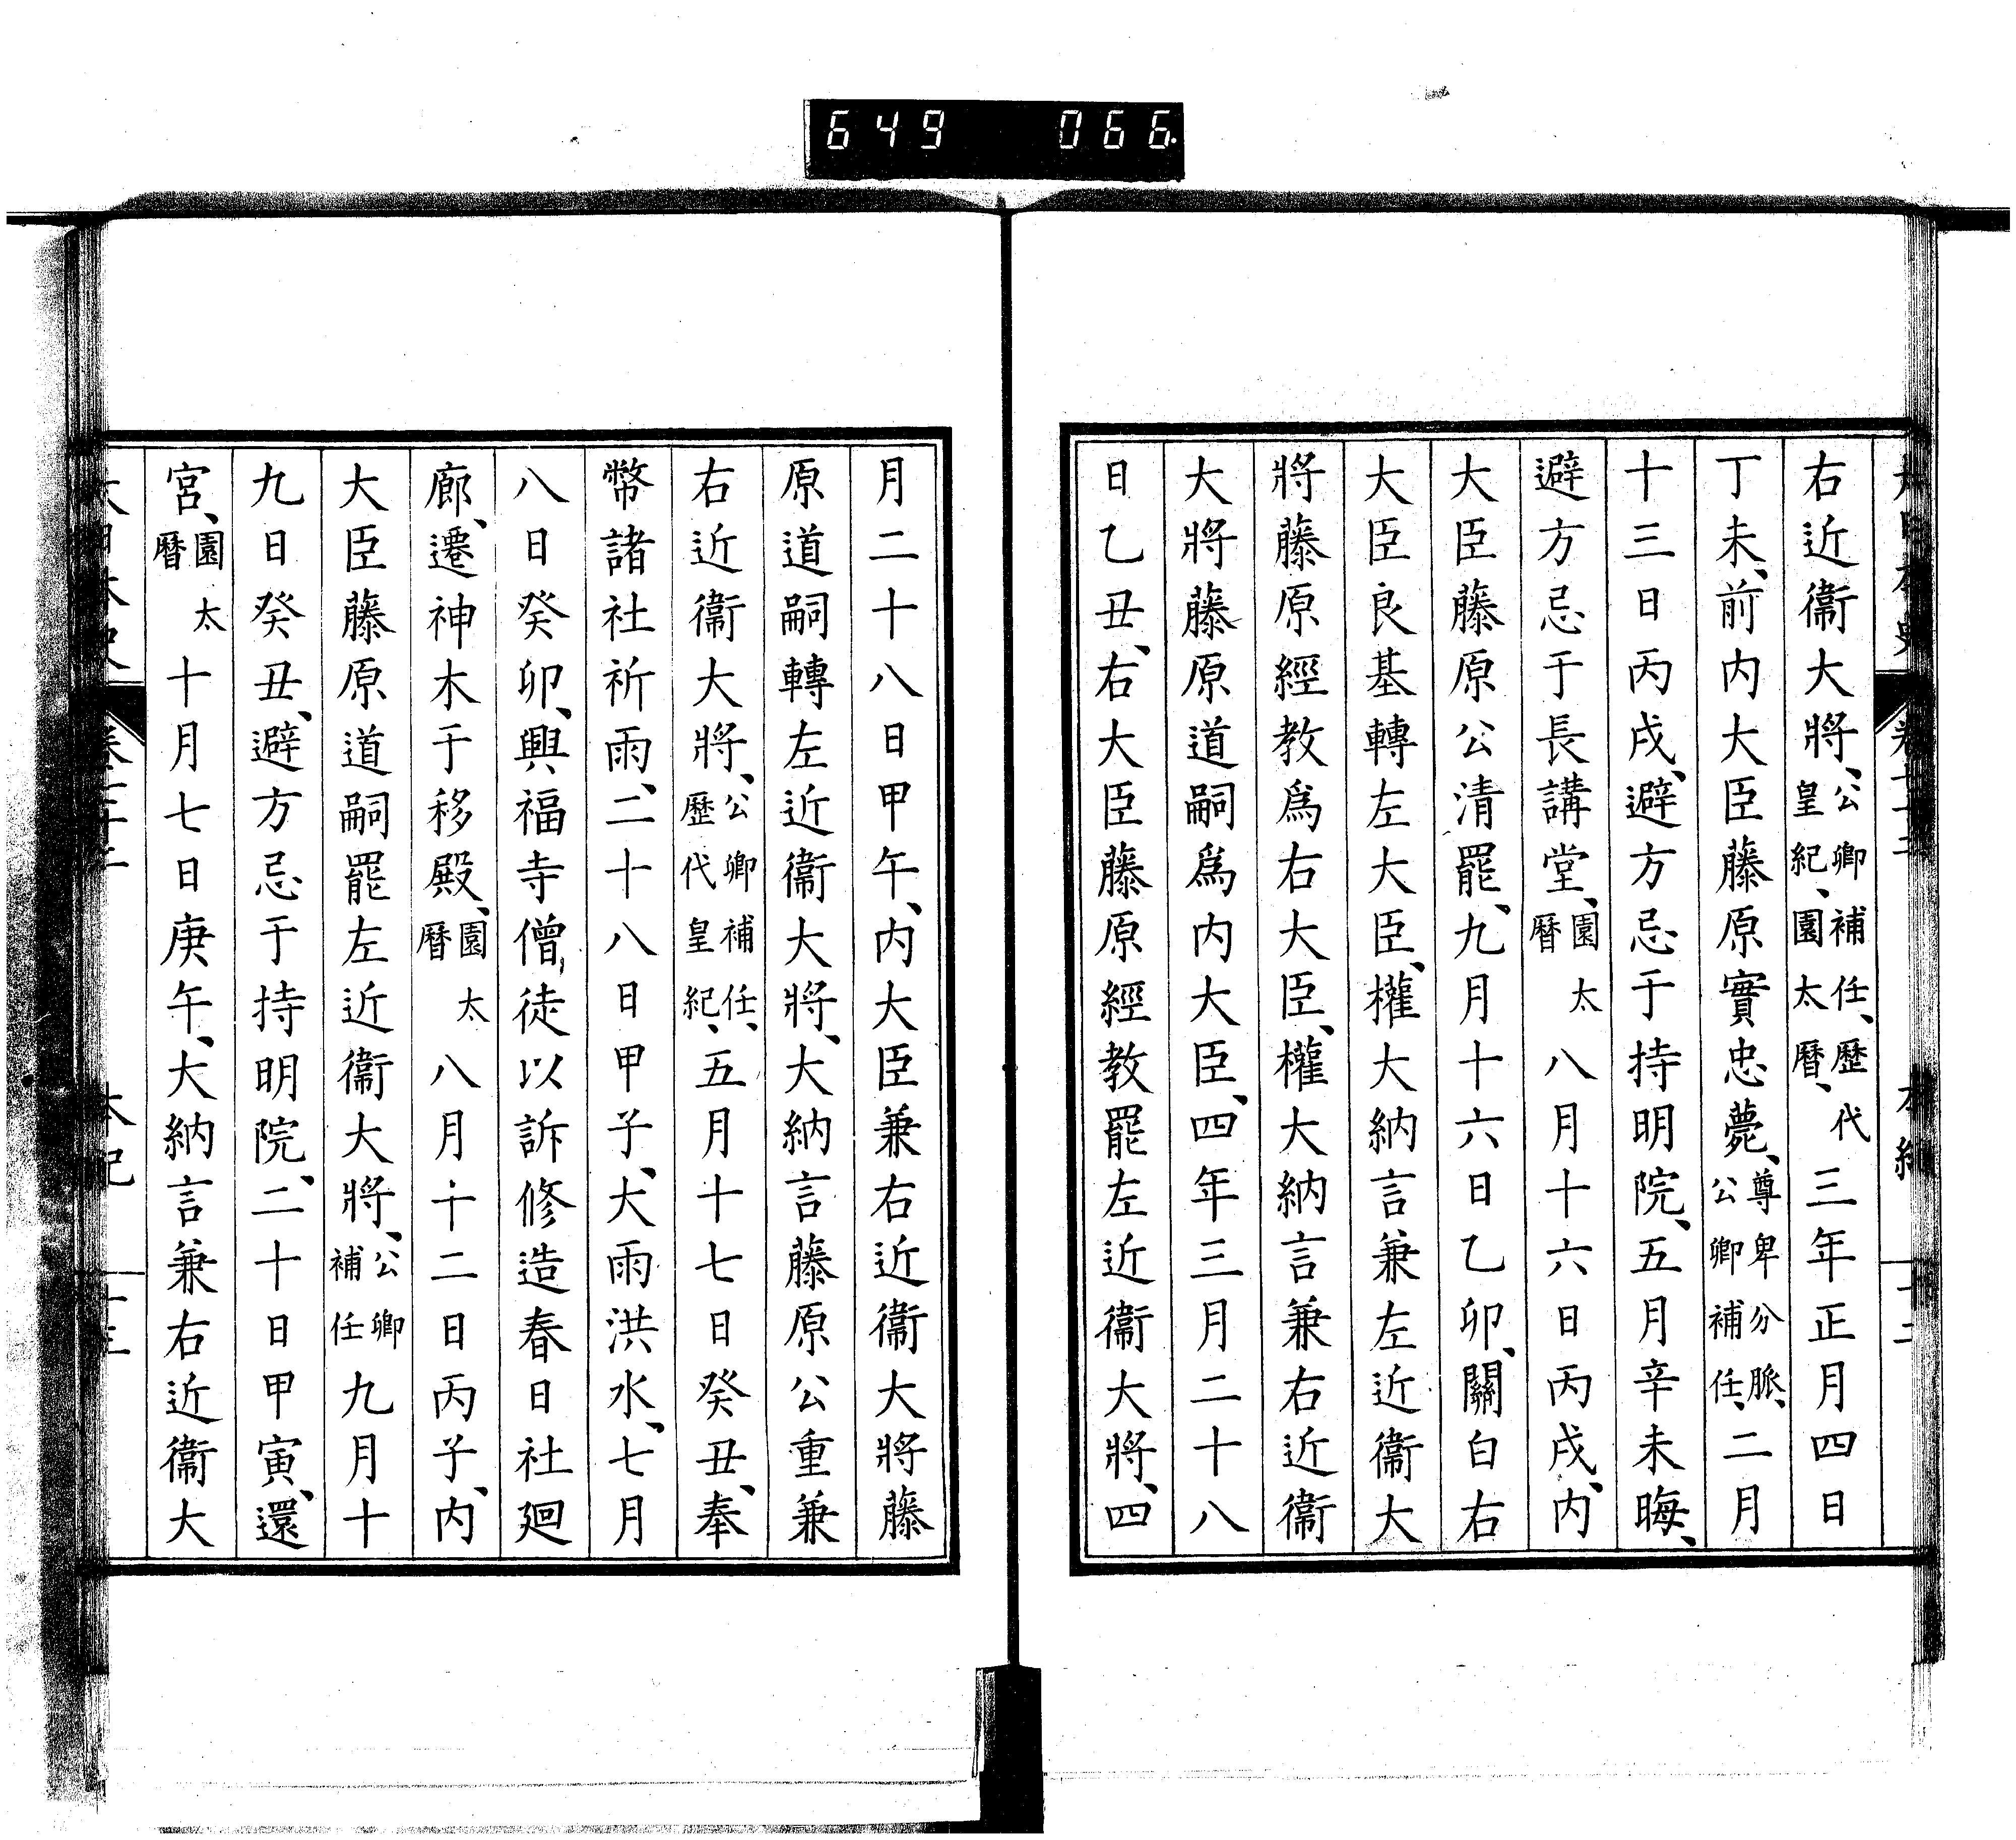 649 066
右近衞大將、公卿補任、歷代皇紀、園太曆、三年正月四日
丁未、前内大臣藤原實忠薨、尊卑分脈、公卿補任、二月
十三日丙戌、避方忌于持明院、五月辛未晦、
避方忌于長講堂、園太曆八月十六日丙戌、内
大臣藤原公清罷、九月十六日乙卯、關白右
大臣良基轉左大臣、權大納言兼左近衞大
將藤原經教爲右大臣、權大納言兼右近衞
大將藤原道嗣爲内大臣、四年三月二十八
日乙丑、右大臣藤原經教罷左近衞大將、四
月二十八日甲午、内大臣兼右近衞大將藤
原道嗣轉左近衞大將、大納言藤原公重兼
右近衞大將、公卿補任、歷代皇紀、五月十七日癸丑、奉
幣諸社祈雨、二十八日甲子、大雨洪水、七月
八日癸卯、興福寺僧徒以訴修造春日社廻
廊、遷神木于移殿、園太曆八月十二日丙子、内
大臣藤原道嗣罷左近衞大將、公卿補任九月十
九日癸丑、避方忌于持明院、二十日甲寅、還
宮、園太曆十月七日庚午、大納言兼右近衞大